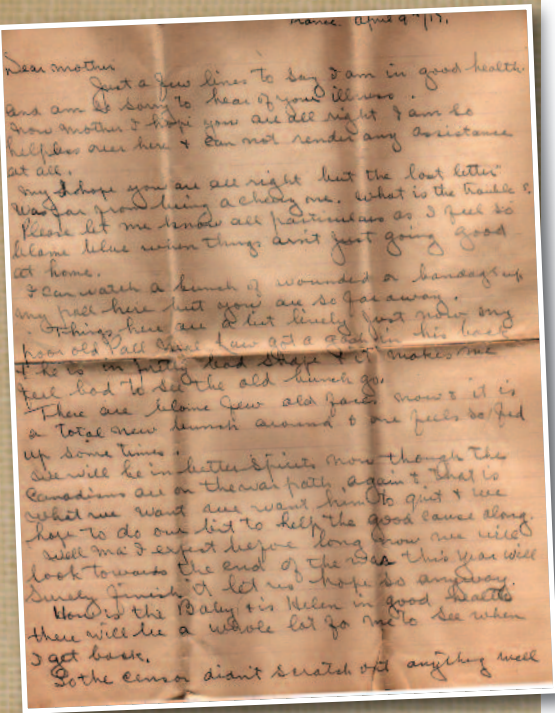 France. April 9th/17.
Dear Mother
Just a few lines to say I am in good health
and am so sorry to hear of your illness.
Now Mother I hope you are all right I am so
helpless over here & can not render any assistance
at all.
My I hope you are all right but the last letter
was far from being a cheery one. What is the trouble?
Please let me know all particulars as I feel so
blame blue when things ain't just going good
at home.
I can watch a bunch of wounded or bandage up
my pall here but you are so far away.
Things here are a bit lively just now my
poor old Pall got a gash in his back
& he is in pretty bad shape & it makes me
feel bad to see the old bunch go.
There are blame few old faces now & it is
a total new bunch around & one feels so fed
up some times.
We will be in better spirits now though the
Canadians are on the war path again & that is
what we want we want him to quit & we
hope to do our bit to help the good cause along.
Well Ma I expect before long now we will
look towards the end of the war this year will
surely finish it let us hope so anyway.
How is the Baby & is Helen in good health
there will be a whole lot for me to see when
I get back.
So the censor didn't scratch out anything well